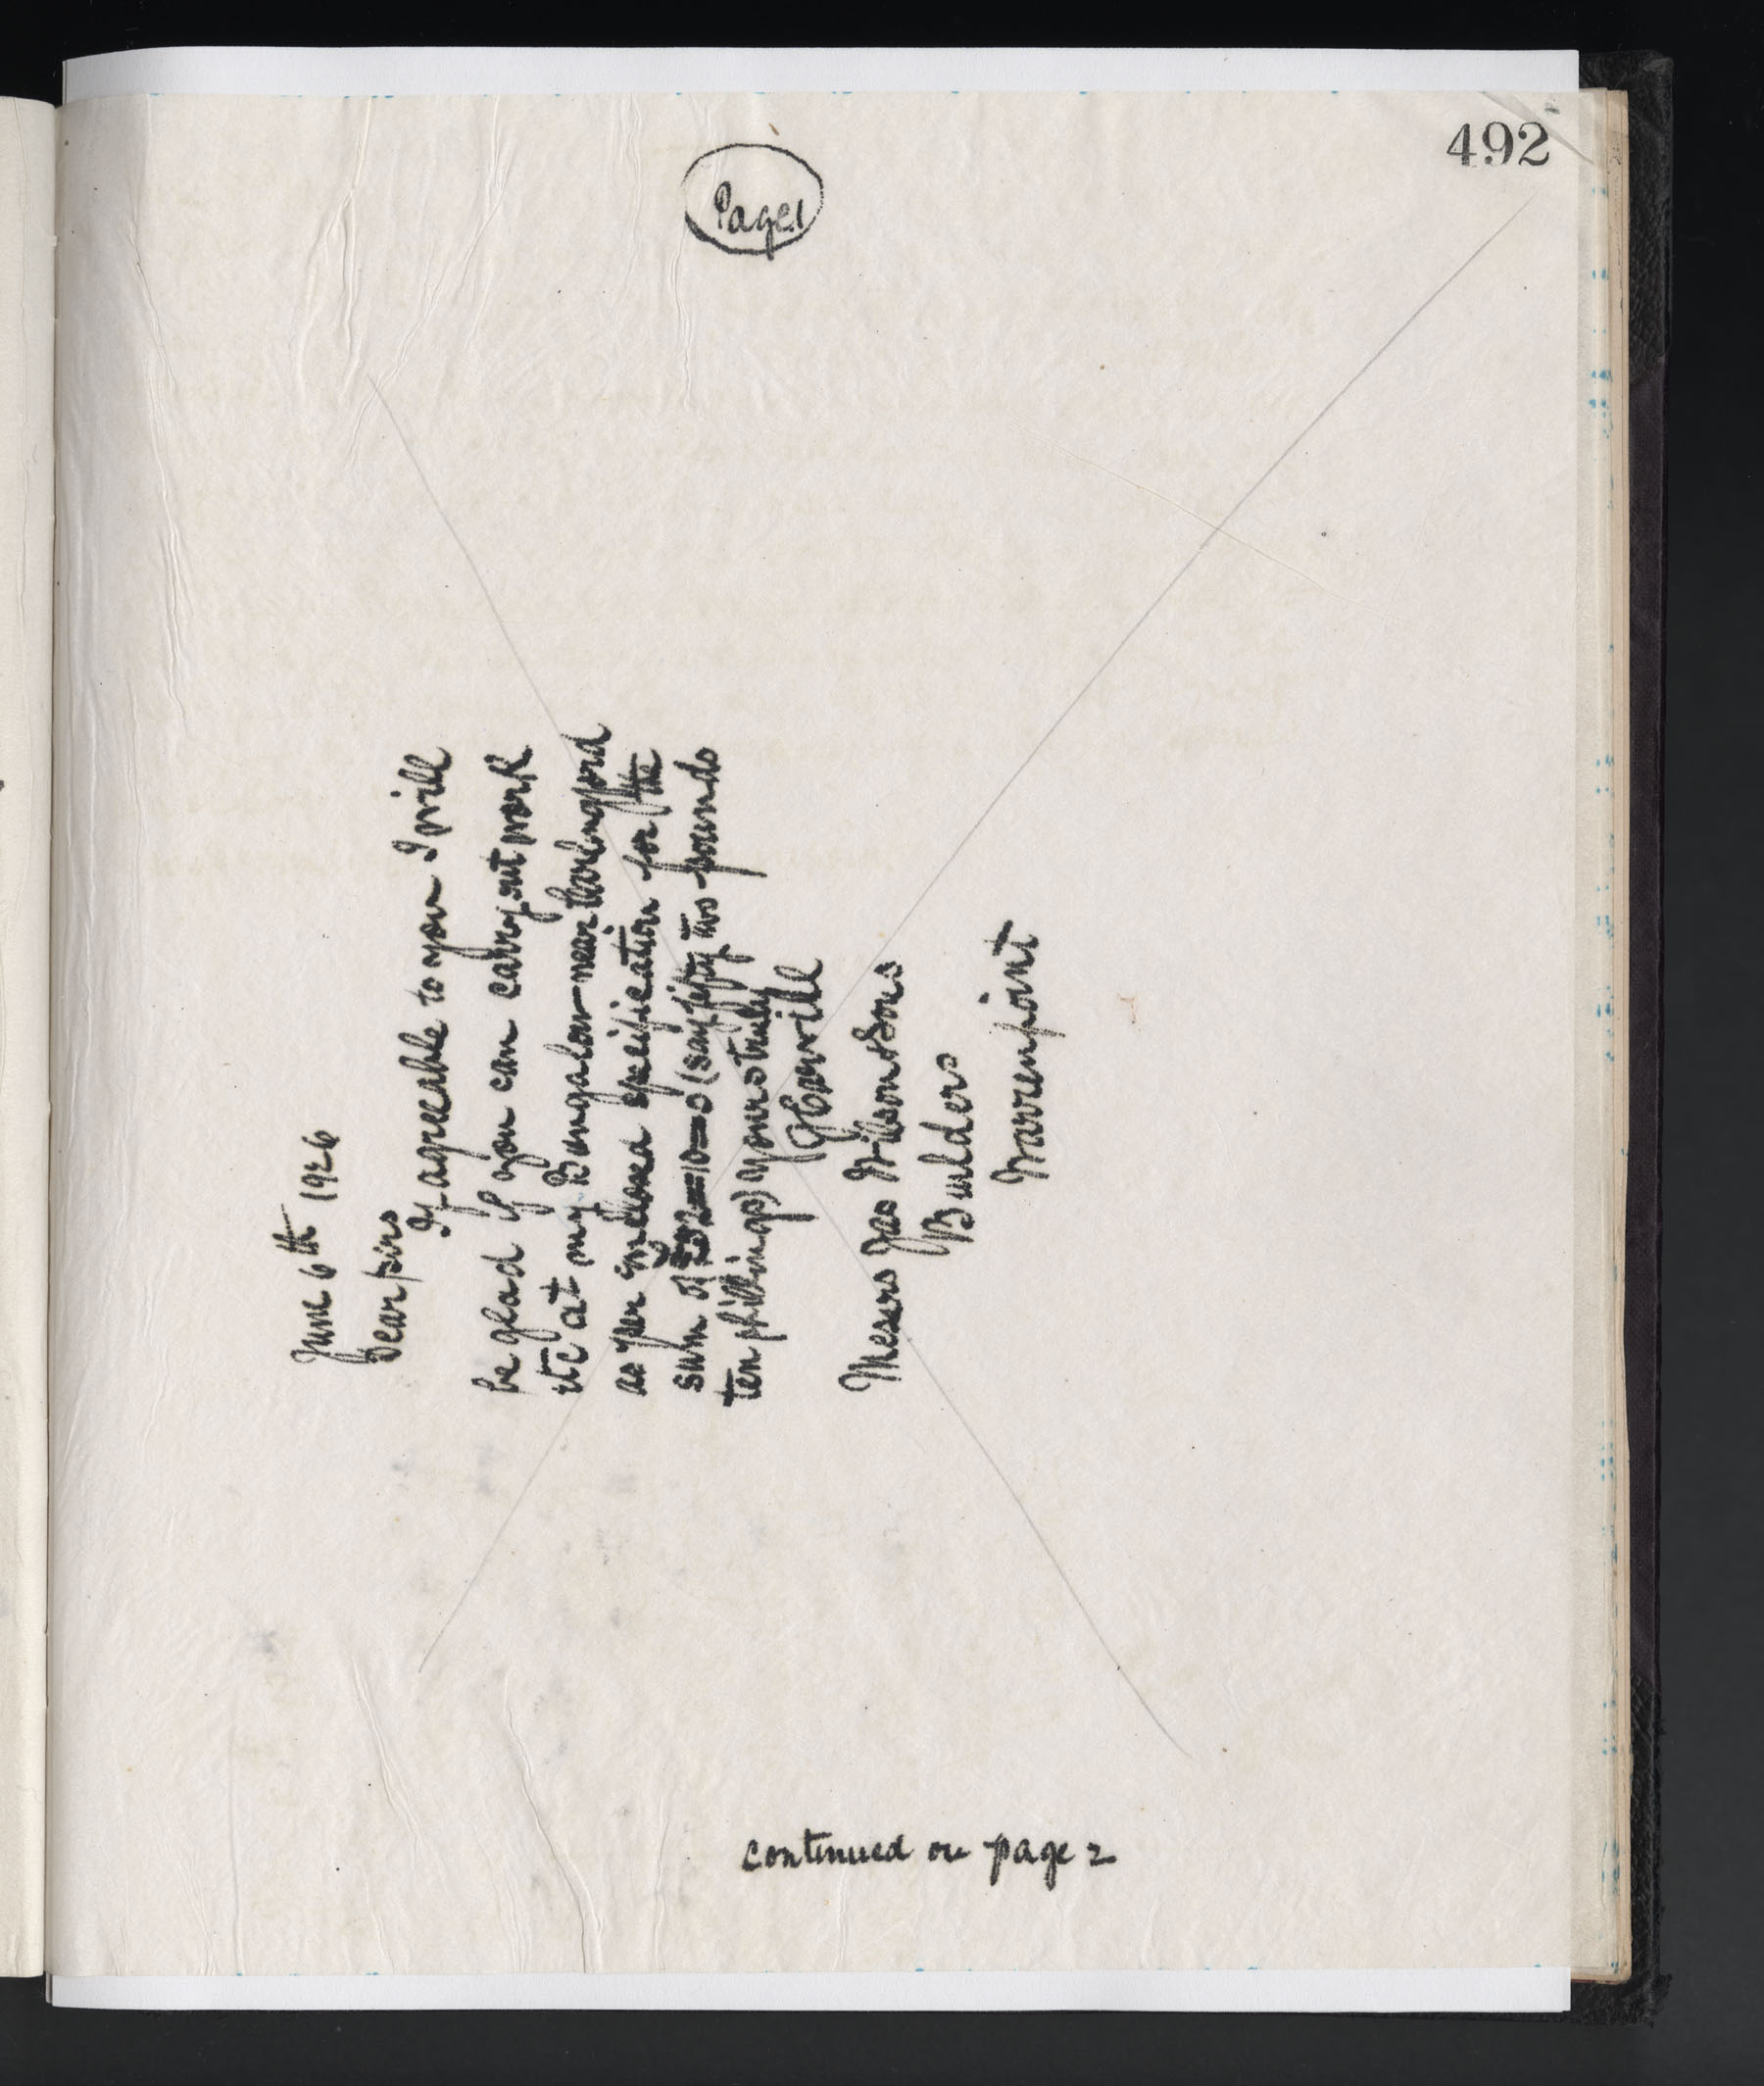 492
Page 1
June 6th 1926
Dear sirs
If agreeable to you I will
be glad if you can carry out work
etc at my Bungalow near Carlingford
as per enclosed specification for the
sum of £52=10=0 (say fifty two pounds
ten shillings) yours truly
Messrs Jas Wilson & Sons
Builders
Warrenpoint
continued on page 2